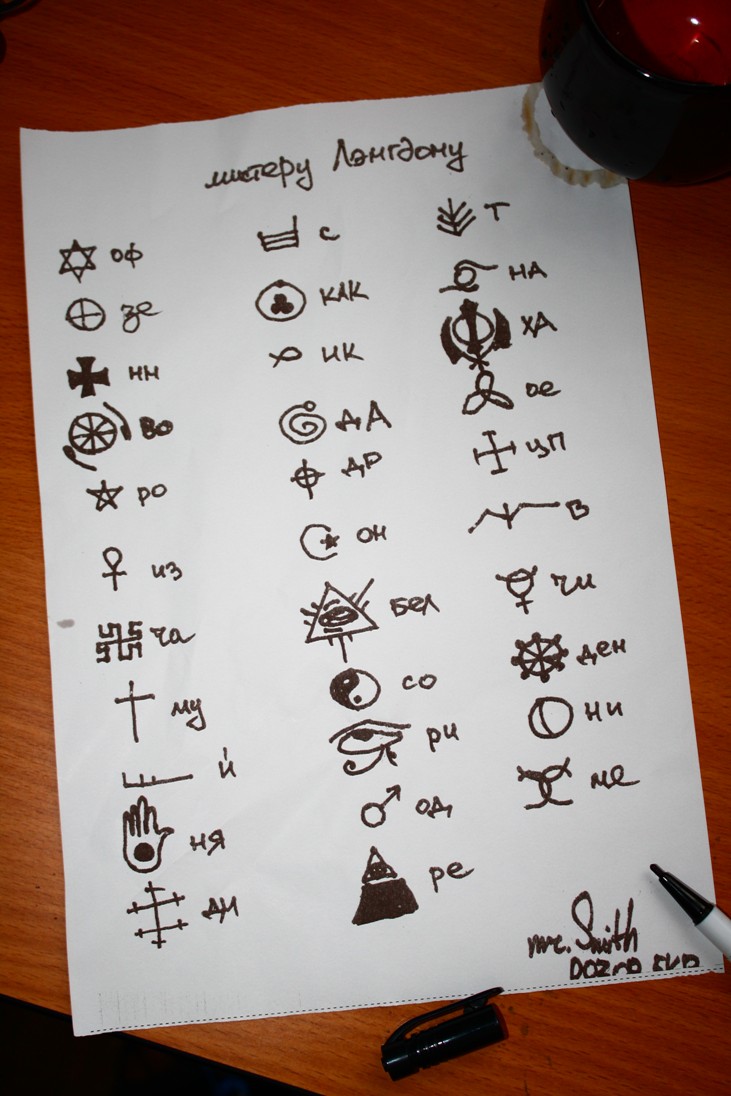 мистеру Лэнгдону
оф
зе
нн
во
ро
из
ча
му
й
ня
ди
с
как
ик
да
др
он
бел
со
ри
од
ре
т
на
ха
ое
цп
в
чи
ден
ни
ме
mr. Smith